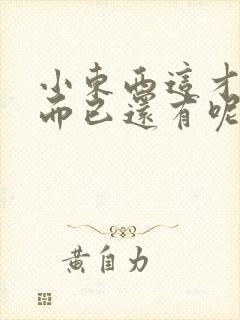 小東西這才
而已還有呢
黃自力